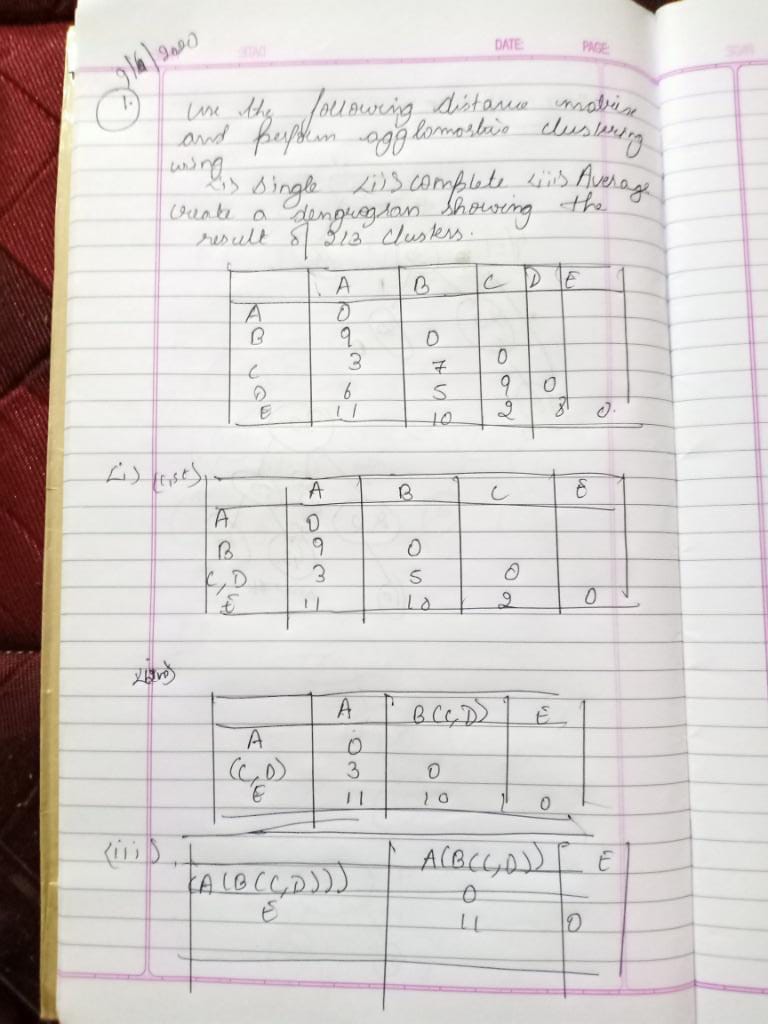 DATE: PAGE:
1.
use the following distance matrix
and perform agglomostio clustering
using
<i> single <ii> complete <iii> Average
create a dengrogran showing the
result of 2/3 clusters.
A B C D E
A 0
B 9 0
C 3 7 0
D 6 5 9 0
E 11 10 2 8 0.
<i)
A B C E
A 0
B 9 0
C,D 3 5 0
E 11 10 2 0
A B(C,D) E
A 0
(C,D) 3 0
E 11 10 0
(iii)
A(B(C,D)) E
(A(B(C,D))) 0
E 11 0